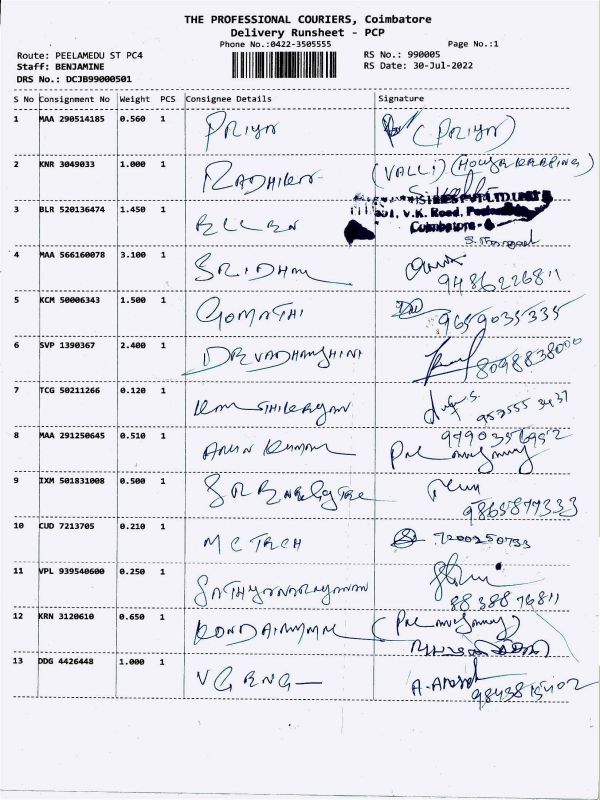 THE PROFESSIONAL COURIERS, Coimbatore
Delivery Runsheet - PCP
Phone No.:0422-3505555 Page No.:1
Route: PEELAMEDU ST PC4 RS No.: 990005
Staff: BENJAMINE RS Date: 30-Jul-2022
DRS No.: DCJB99000501
S No Consignment No Weight PCS Consignee Details Signature
1 MAA 290514185 0.560 1 PRIYA (PRIYA)
2 KNR 3049033 1.000 1 RADHIKA (VALLI)
3 BLR 520136474 1.450 1 ELLEN
V.K. Road,
Coimbatore - 4
4 MAA 566160078 3.100 1 SRIDHAR
9486226811
5 KCM 50006343 1.500 1 GOMATHI 9659035335
6 SVP 1390367 2.400 1 8098838000
7 TCG 50211266 0.120 1
8 MAA 291250645 0.510 1 ARUN KUMAR 9790356952
9 IXM 501831008 0.500 1
9865877333
10 CUD 7213705 0.210 1 MC TECH 7200250733
11 VPL 939540600 0.250 1 SATHYANARAYANAN
8838876811
12 KRN 3120610 0.650 1
13 DDG 4426448 1.000 1 VG ENG